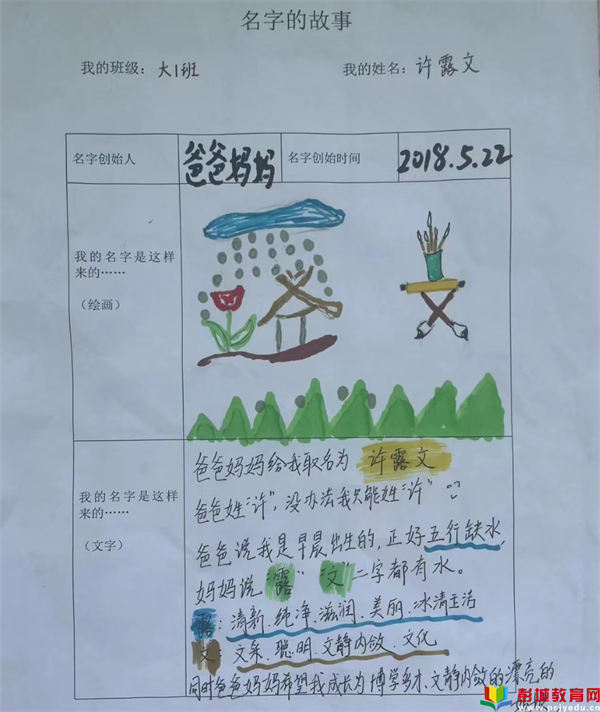 名字的故事
我的班级：大1班
我的姓名：许露文
名字创始人
爸爸妈妈
名字创始时间
2018.5.22
我的名字是这样
来的……
（绘画）
我的名字是这样
来的……
（文字）
爸爸妈妈给我取名为 许露文
爸爸姓“许”，没办法我只能姓“许”
爸爸说我是早晨出生的，正好五行缺水，
妈妈说“露”“文”二字都有水。
露：清新、纯净、滋润、美丽、冰清玉洁
文：文采、聪明、文静内敛、文化
同时爸爸妈妈希望我成长为博学多才、文静内敛的漂亮的
彭城教育网
www.pcjyedu.cn